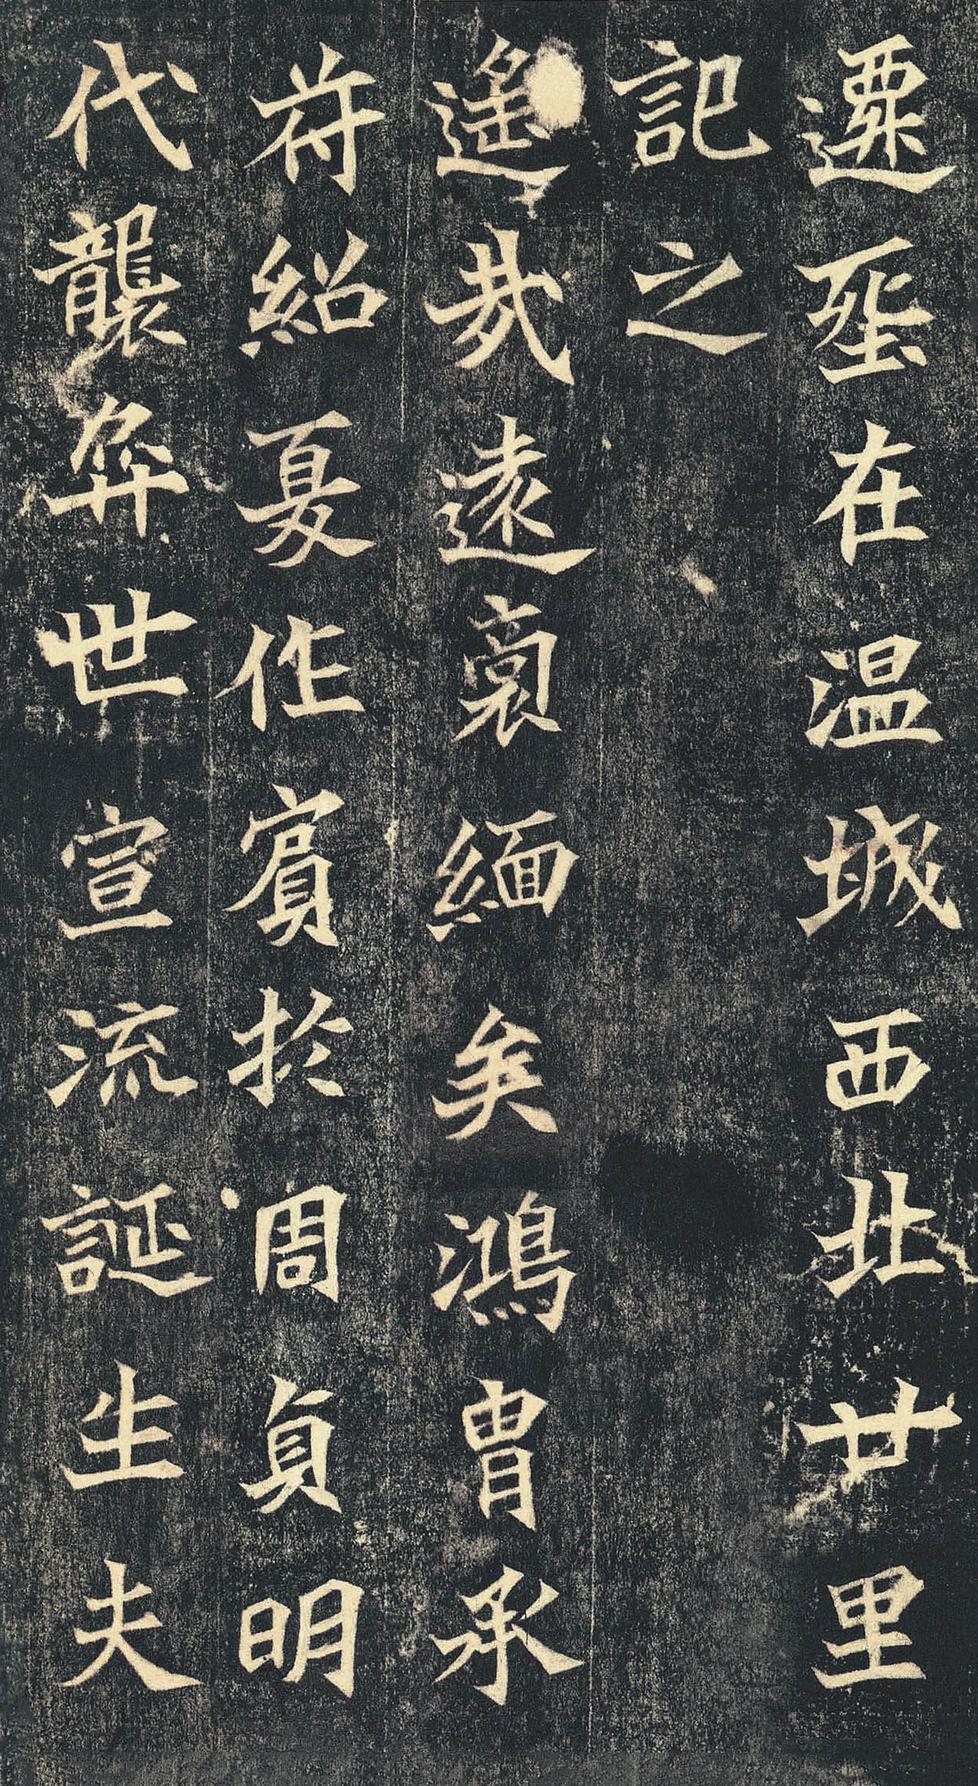 遷葬在温城西北廿里
記之
遙哉遠裔緬矣鴻胄承
符紹夏作賓於周貞明
代襲弈世宣流誕生夫